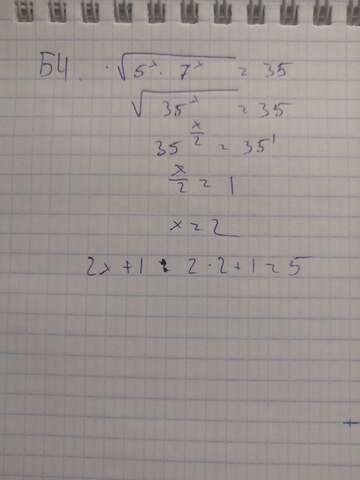 Б4. √(5ˣ · 7ˣ) = 35
√(35ˣ) = 35
35^(x/2) = 35¹
x/2 = 1
x = 2
2x + 1 = 2 · 2 + 1 = 5